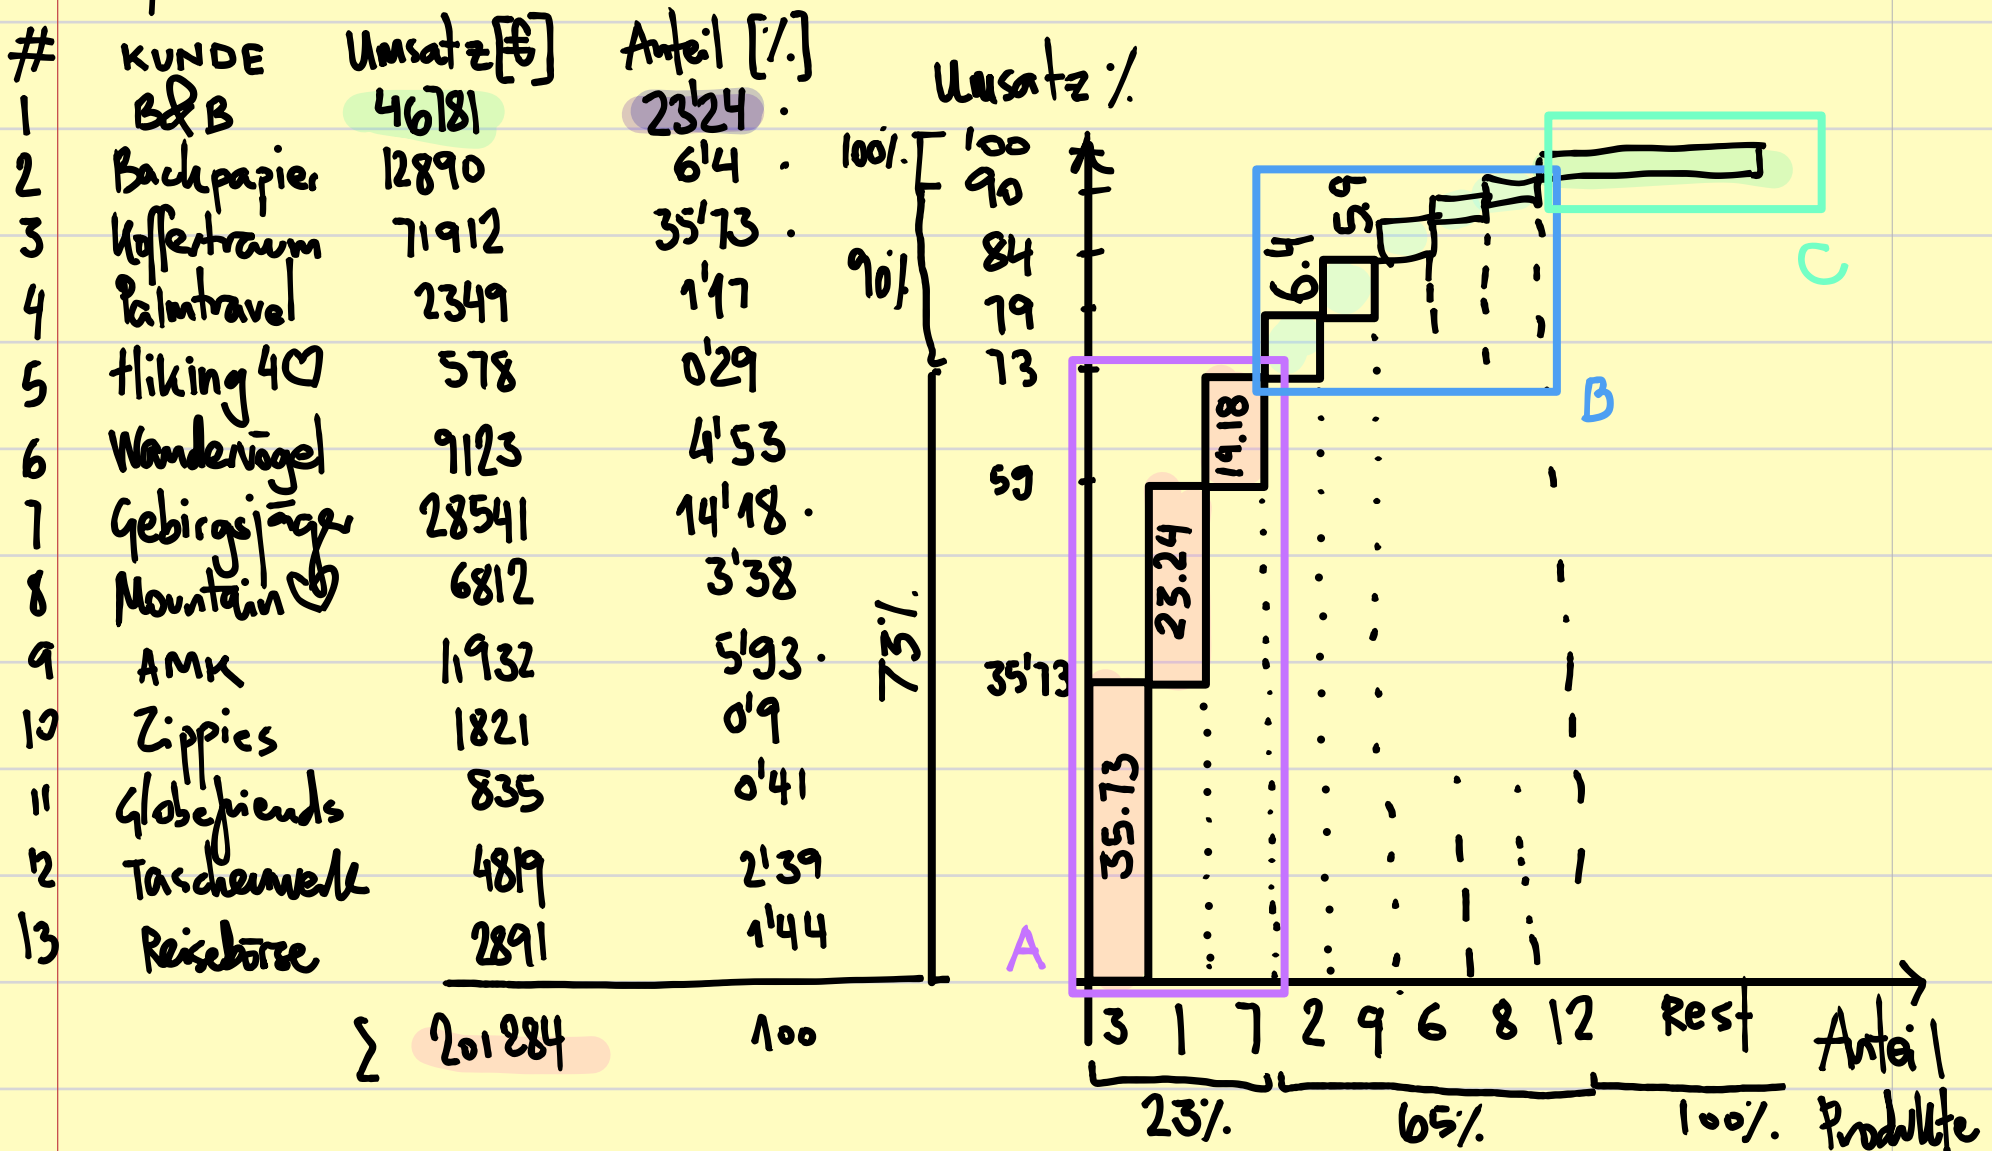 # KUNDE Umsatz [€] Anteil [%]
1 B&B 46781 23'24
2 Backpapier 12890 6'4
3 Koffertraum 71912 35'73
4 Palmtravel 2349 1'17
5 Hiking 4♡ 578 0'29
6 Wandervögel 9123 4'53
7 Gebirgsjäger 28541 14'18
8 Mountain ♡ 6812 3'38
9 AMK 11932 5'93
10 Zippies 1821 0'9
11 Globefriends 835 0'41
12 Taschenwelt 4819 2'39
13 Reisebörse 2891 1'44
Σ 201284 100
Umsatz %
100%
90%
73%
100
90
84
79
73
59
35'73
35.73
23.24
19.18
6.4
5.9
A
B
C
3 1 7 2 9 6 8 12 Rest
23% 65% 100%
Anteil
Produkte